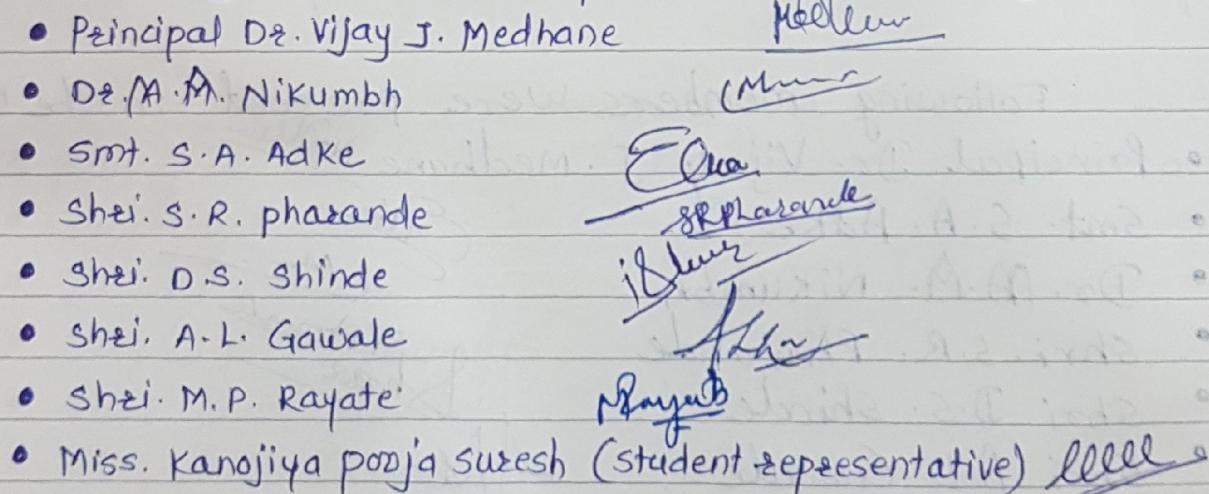 • Principal Dr. Vijay J. Medhane
• Dr. M. A. Nikumbh
• Smt. S.A. Adke
• Shri. S.R. pharande SRPharande
• Shri. D.S. Shinde
• Shri. A.L. Gawale
• Shri. M.P. Rayate
• Miss. Kanojiya pooja Suresh (student representative)